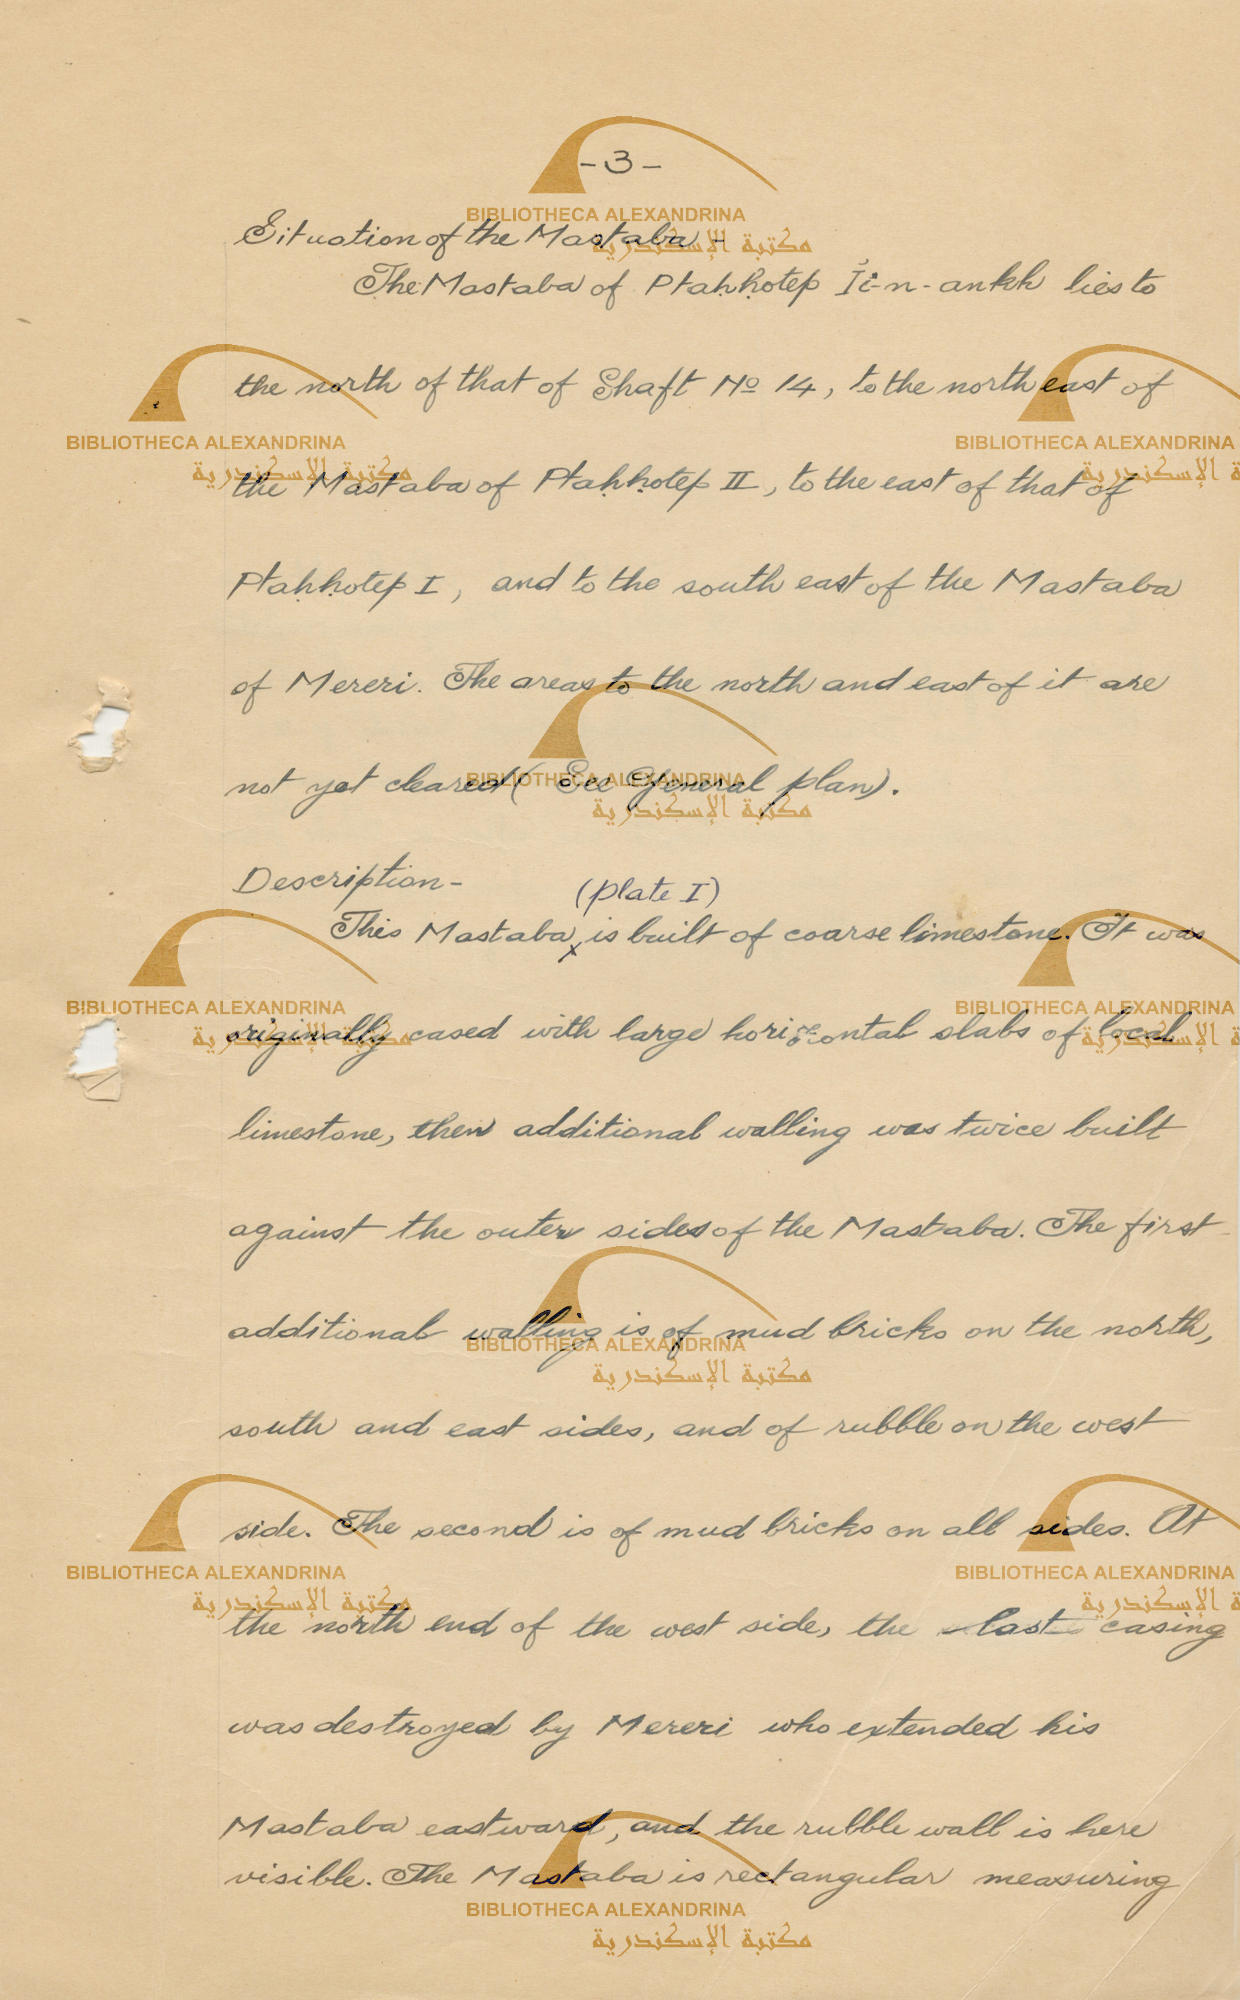 -3-
Situation of the Mastaba -
The Mastaba of Ptaḥḥotep Ỉi-n-ankh lies to
the north of that of Shaft Nº 14, to the north east of
the Mastaba of Ptaḥḥotep II, to the east of that of
Ptaḥḥotep I, and to the south east of the Mastaba
of Mereri. The areas to the north and east of it are
not yet cleared (See General plan).
Description-
(plate I)
This Mastaba x is built of coarse limestone. It was
originally cased with large horizontal slabs of local
limestone, then additional walling was twice built
against the outer sides of the Mastaba. The first
additional walling is of mud bricks on the north,
south and east sides, and of rubble on the west
side. The second is of mud bricks on all sides. At
the north end of the west side, the last casing
was destroyed by Mereri who extended his
Mastaba eastward, and the rubble wall is here
visible. The Mastaba is rectangular measuring
BIBLIOTHECA ALEXANDRINA
مكتبة الإسكندرية